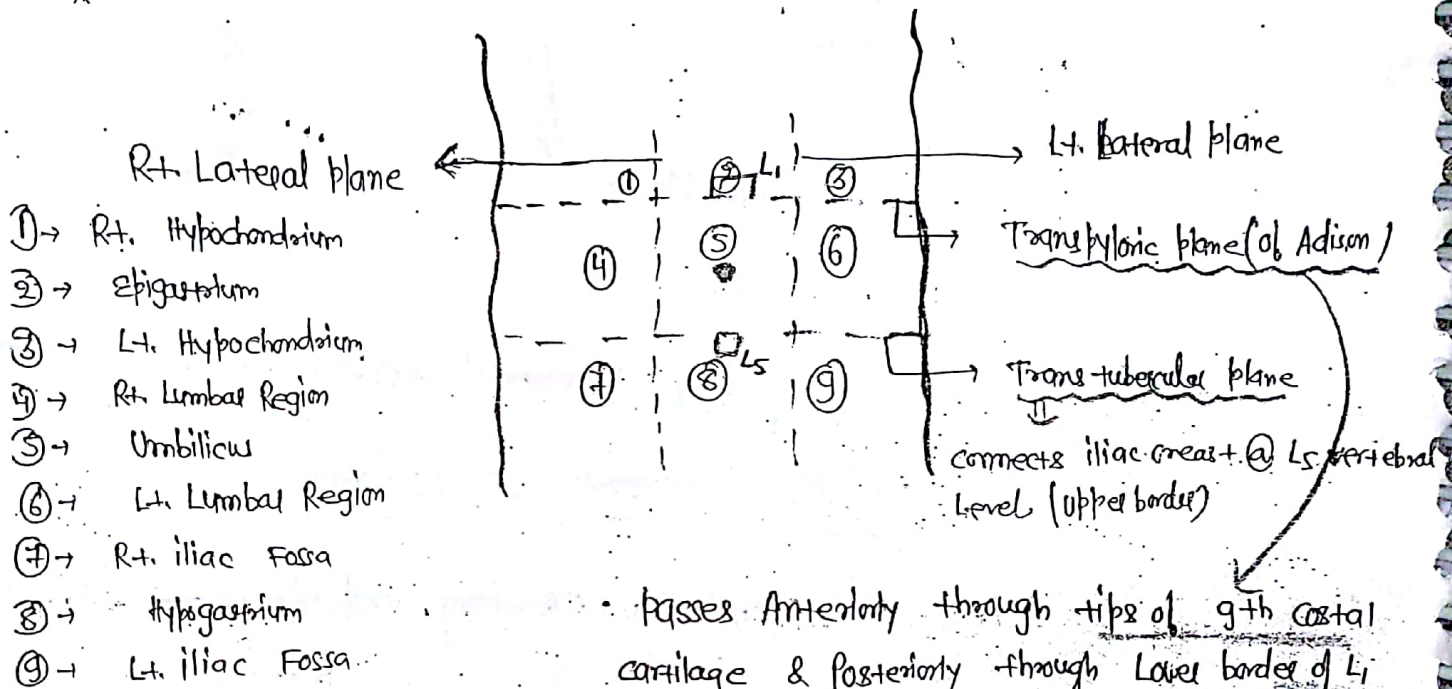 Rt. Lateral plane
① → Rt. Hypochondrium
② → Epigastrium
③ → Lt. Hypochondrium
④ → Rt. Lumbar Region
⑤ → Umbilicus
⑥ → Lt. Lumbar Region
⑦ → Rt. iliac Fossa
⑧ → Hypogastrium
⑨ → Lt. iliac Fossa
① ② L1 ③
④ ⑤ ⑥
L5
⑦ ⑧ ⑨
Lt. Lateral plane
Transpyloric plane (of Adison)
Trans-tubercular plane
connects iliac creast @ L5 vertebral
Level (upper border)
• passes Anteriorly through tips of 9th costal
cartilage & Posteriorly through Lower border of L1